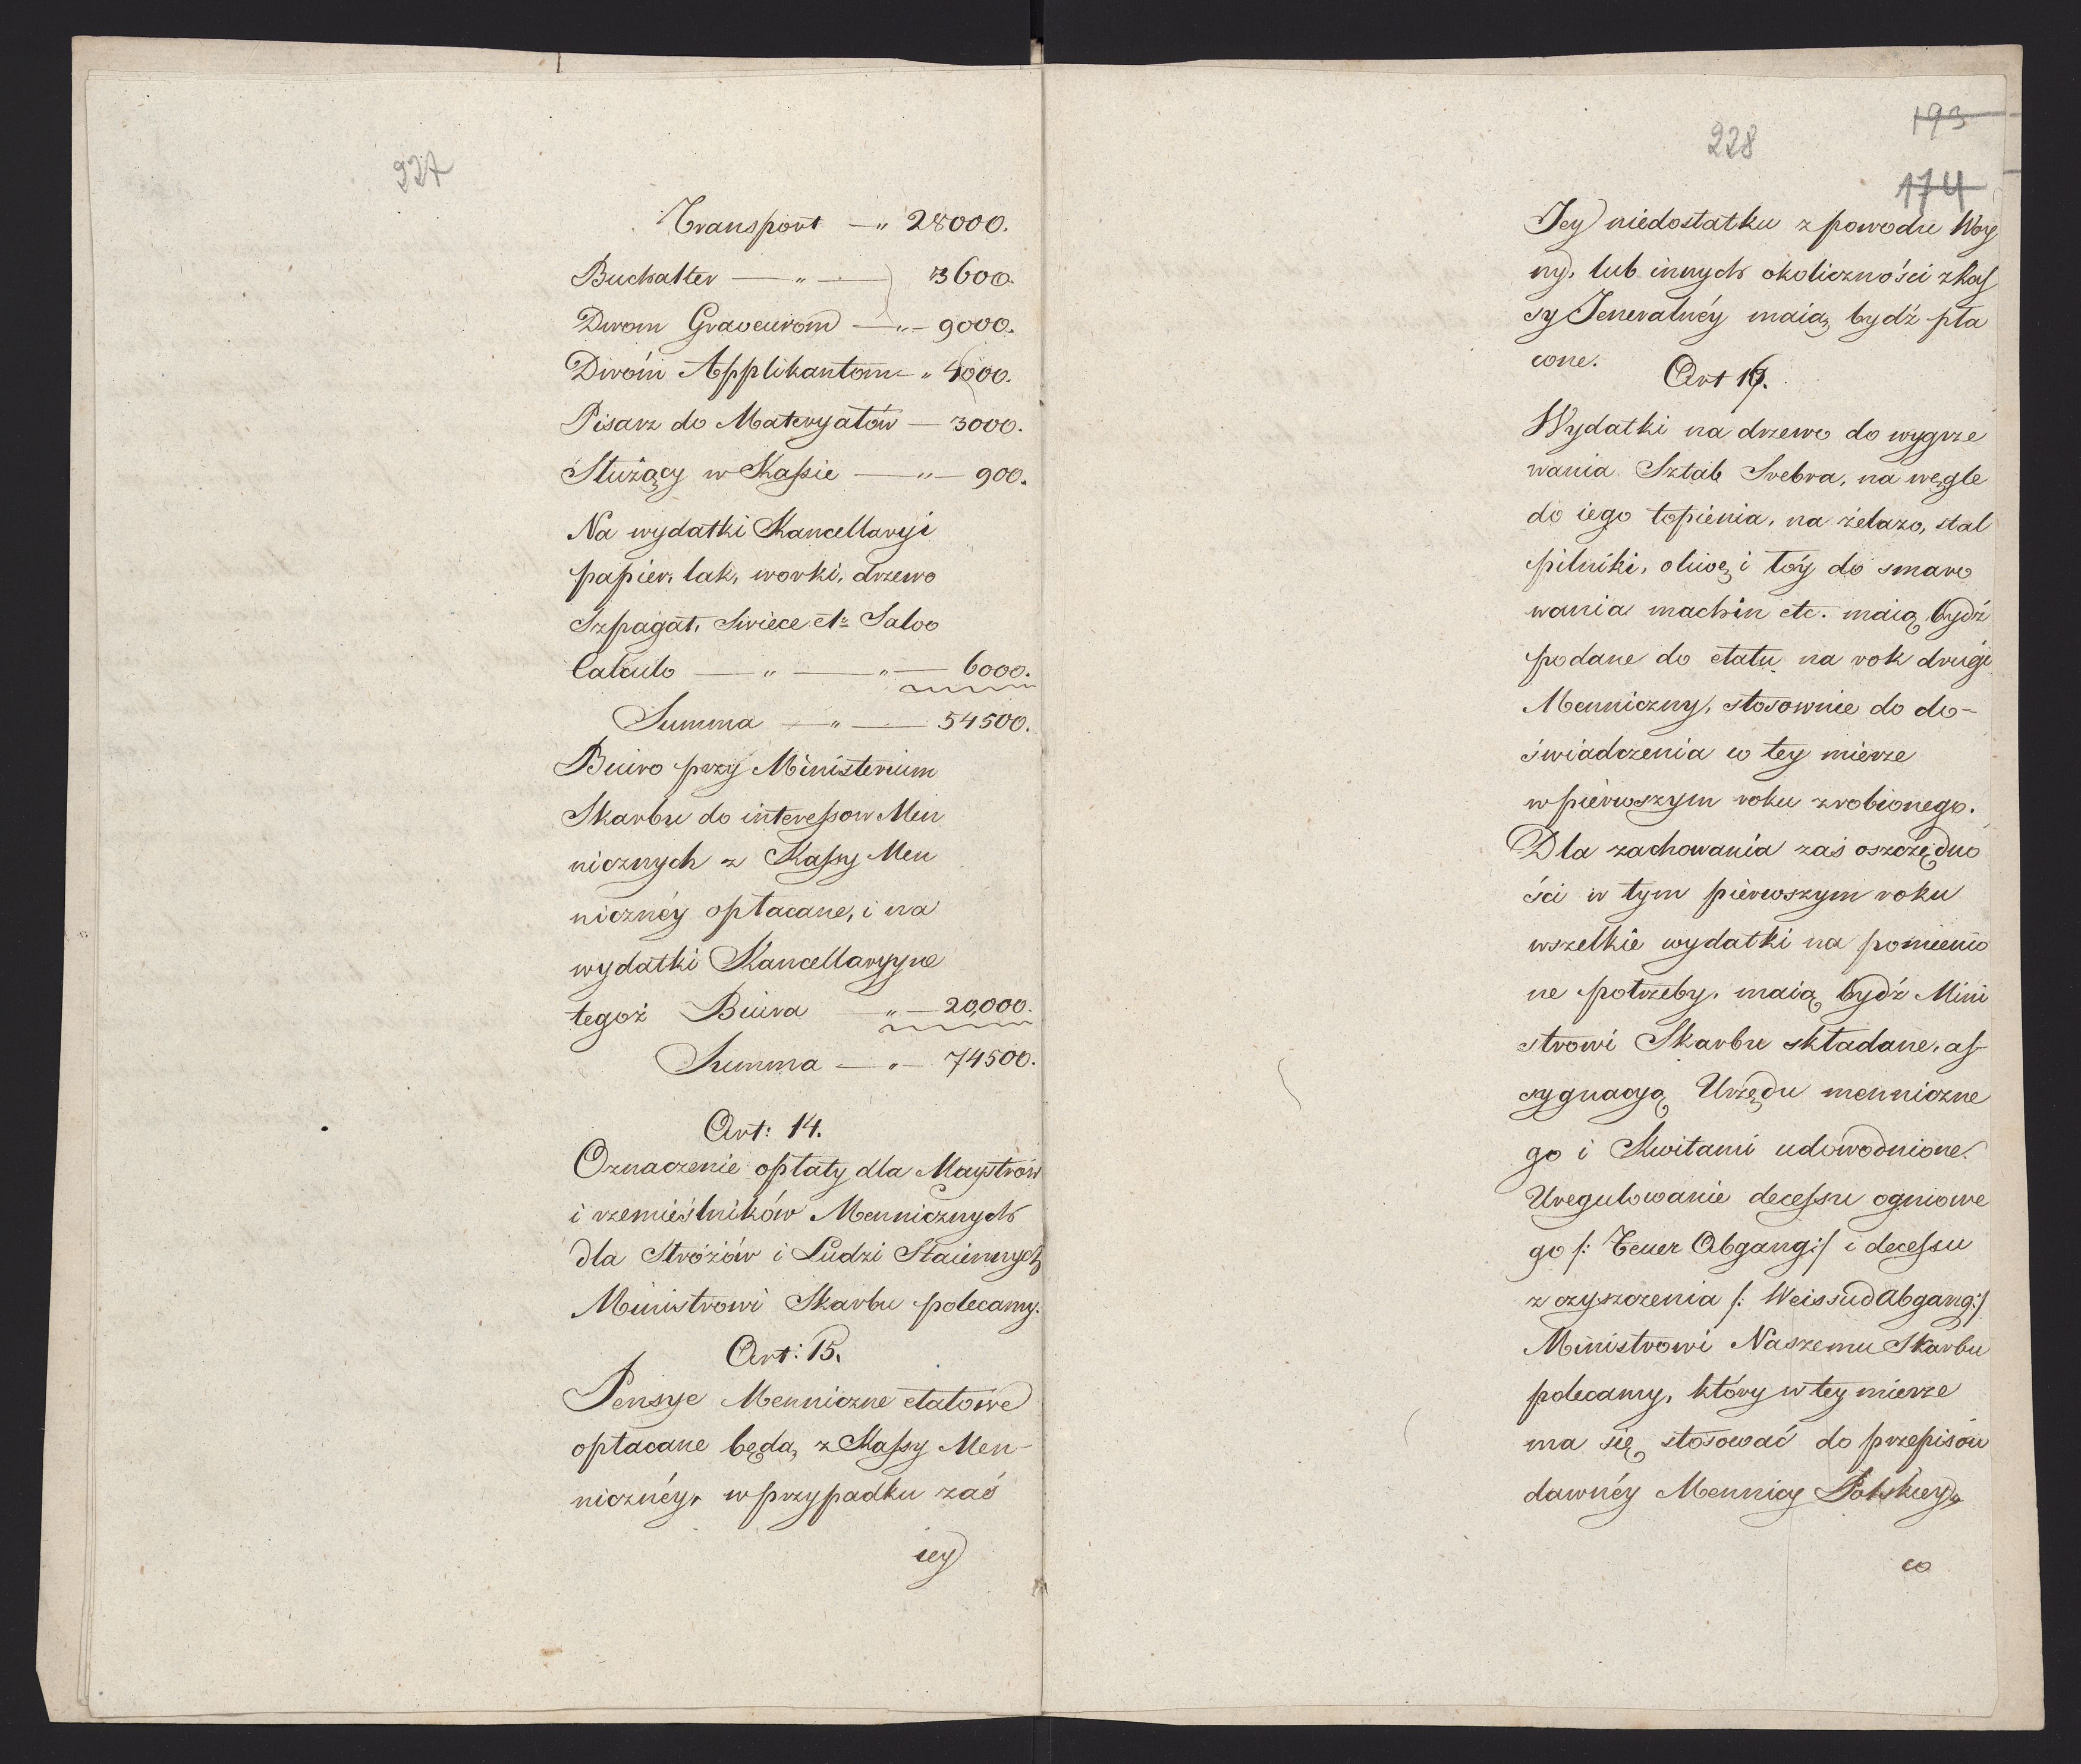 227
Transport — „ 28000.
Buchalter — „ — 3600.
Dwom Graveurom — „ — 9000.
Dwóm Applikantom — „ 4000.
Pisarz do Materyałów — 3000.
Służący w Kassie — „ — 900.
Na wydatki Kancellaryi
papier, lak, worki, drzewo
Szpagat, Swiece etc Salvo
Calculo — „ — „ — 6000.
Summa — „ — 54500.
Buiro przy Ministerium
Skarbu do interessow Men
nicznych z Kassy Men
nicznéy opłacane, i na
wydatki Kancellaryyne
tegoż Biura — „ — 20,000.
Summa — „ — 74500.
Art: 14.
Oznaczenie opłaty dla Maystrów
i rzemieślników Mennicznych
dla Stróżów i Ludzi Staiennych
Ministrowi Skarbu polecamy.
Art: 15.
Pensye Menniczne etatowe
opłacane będą, z Kassy Men-
nicznéy, w przypadku zaś
iey
193
228
174
Jey niedostatku z powodu Woy
ny, lub innych okoliczności z kas
sy Jeneralnéy maią bydź pła
cone.
Art 16.
Wydatki na drzewo do wygrze
wania Sztab Srebra, na węgle
do iego topienia, na żelazo, stal
pilniki, oliwę i łóy do smaro
wania machin etc. maią bydź
podane do etatu na rok drugi
Menniczny, stosownie do do-
świadczenia w tey mierze
w pierwszym roku zrobionego.
Dla zachowania zaś oszczędno
ści w tym pierwszym roku
wszelkie wydatki na pomienio
ne potrzeby, maią bydź Mini
strowi Skarbu składane, as-
sygnacyą Urzędu menniczne
go i Kwitami udowodnione.
Uregulowanie decessu ogniowe
go /: Feuer Abgang :/ i decessu
z czyszczenia /: Weissud Abgang :/
Ministrowi Naszemu Skarbu
polecamy, który w tey mierze
ma się stosować do przepisów
dawnéy Mennicy Polskiey,
co